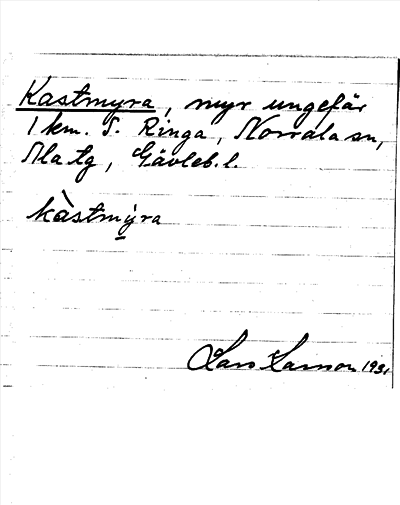 Kastmyra, myr ungefär
1 km. S. Ringa, Norrala sn,
Ala tg, Gävleb. l.
kàstmy̠ra
Lars Larsson 1931